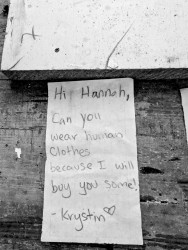 Hi Hannah,
Can you
wear human
Clothes
because I will
buy you some!
- Krystin♡